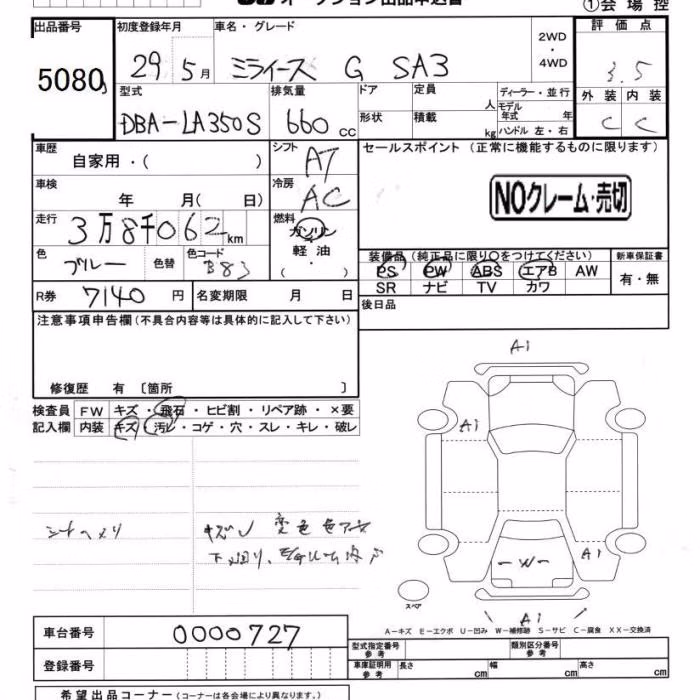 ①会場控
出品番号 初度登録年月 車名・グレード 2WD・4WD 評価点
5080 29年5月 ミライース G SA3 3.5
型式 排気量 ドア 定員 人 ディーラー・並行 外装 内装
DBA-LA350S 660cc 形状 積載 kg モデル年式 年 ハンドル 左・右 C C
車歴 自家用・( ) シフト AT セールスポイント (正常に機能するものに限ります)
車検 年 月( 日) 冷房 AC NOクレーム・売切
走行 3万8千062km 燃料 ガソリン・軽油・( )
色 ブルー 色替 色コード B83 装備品(純正品に限り○をつけてください) 新車保証書
PS PW ABS エアB AW 有・無
SR ナビ TV カワ
R券 7140円 名変期限 月 日 後日品
注意事項申告欄(不具合内容等は具体的に記入して下さい)
修復歴 有 〔箇所 〕
検査員 FW キズ・飛石・ヒビ割・リペア跡・×要
記入欄 内装 キズ・汚レ・コゲ・穴・スレ・キレ・破レ
A1
A1
シートヘタリ キズ 変色
下廻り、
-W- A1
スペア
A1
A-キズ E-エクボ U-凹み W-補修跡 S-サビ C-腐食 XX-交換済
車台番号 0000727 型式指定番号 参考 類別区分番号 参考
登録番号 車庫証明用 参考 長さ cm 幅 cm 高さ cm
希望出品コーナー(コーナーは各会場により異なります。)